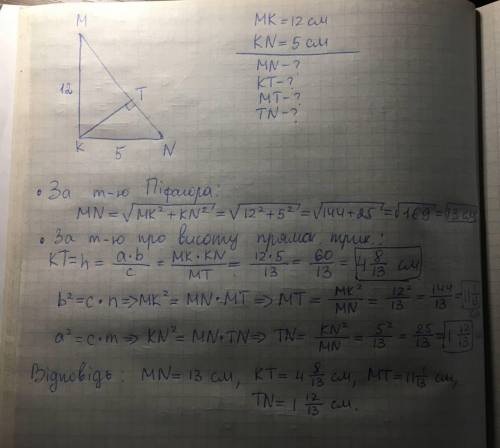 M
MK = 12 см
KN = 5 см
MN - ?
KT - ?
MT - ?
TN - ?
12
T
K
5
N
• За т-ю Піфагора:
MN = √MK² + KN² = √12² + 5² = √144 + 25 = √169 = 13 см
• За т-ю про висоту прямок. трик.:
KT = h = a·b/c = MK·KN/MT = 12·5/13 = 60/13 = 4 8/13 см
b² = c·n ⇒ MK² = MN·MT ⇒ MT = MK²/MN = 12²/13 = 144/13 = 11
a² = c·m ⇒ KN² = MN·TN ⇒ TN = KN²/MN = 5²/13 = 25/13 = 1 12/13
Відповідь: MN = 13 см, KT = 4 8/13 см, MT = 11 1/13 см,
TN = 1 12/13 см.